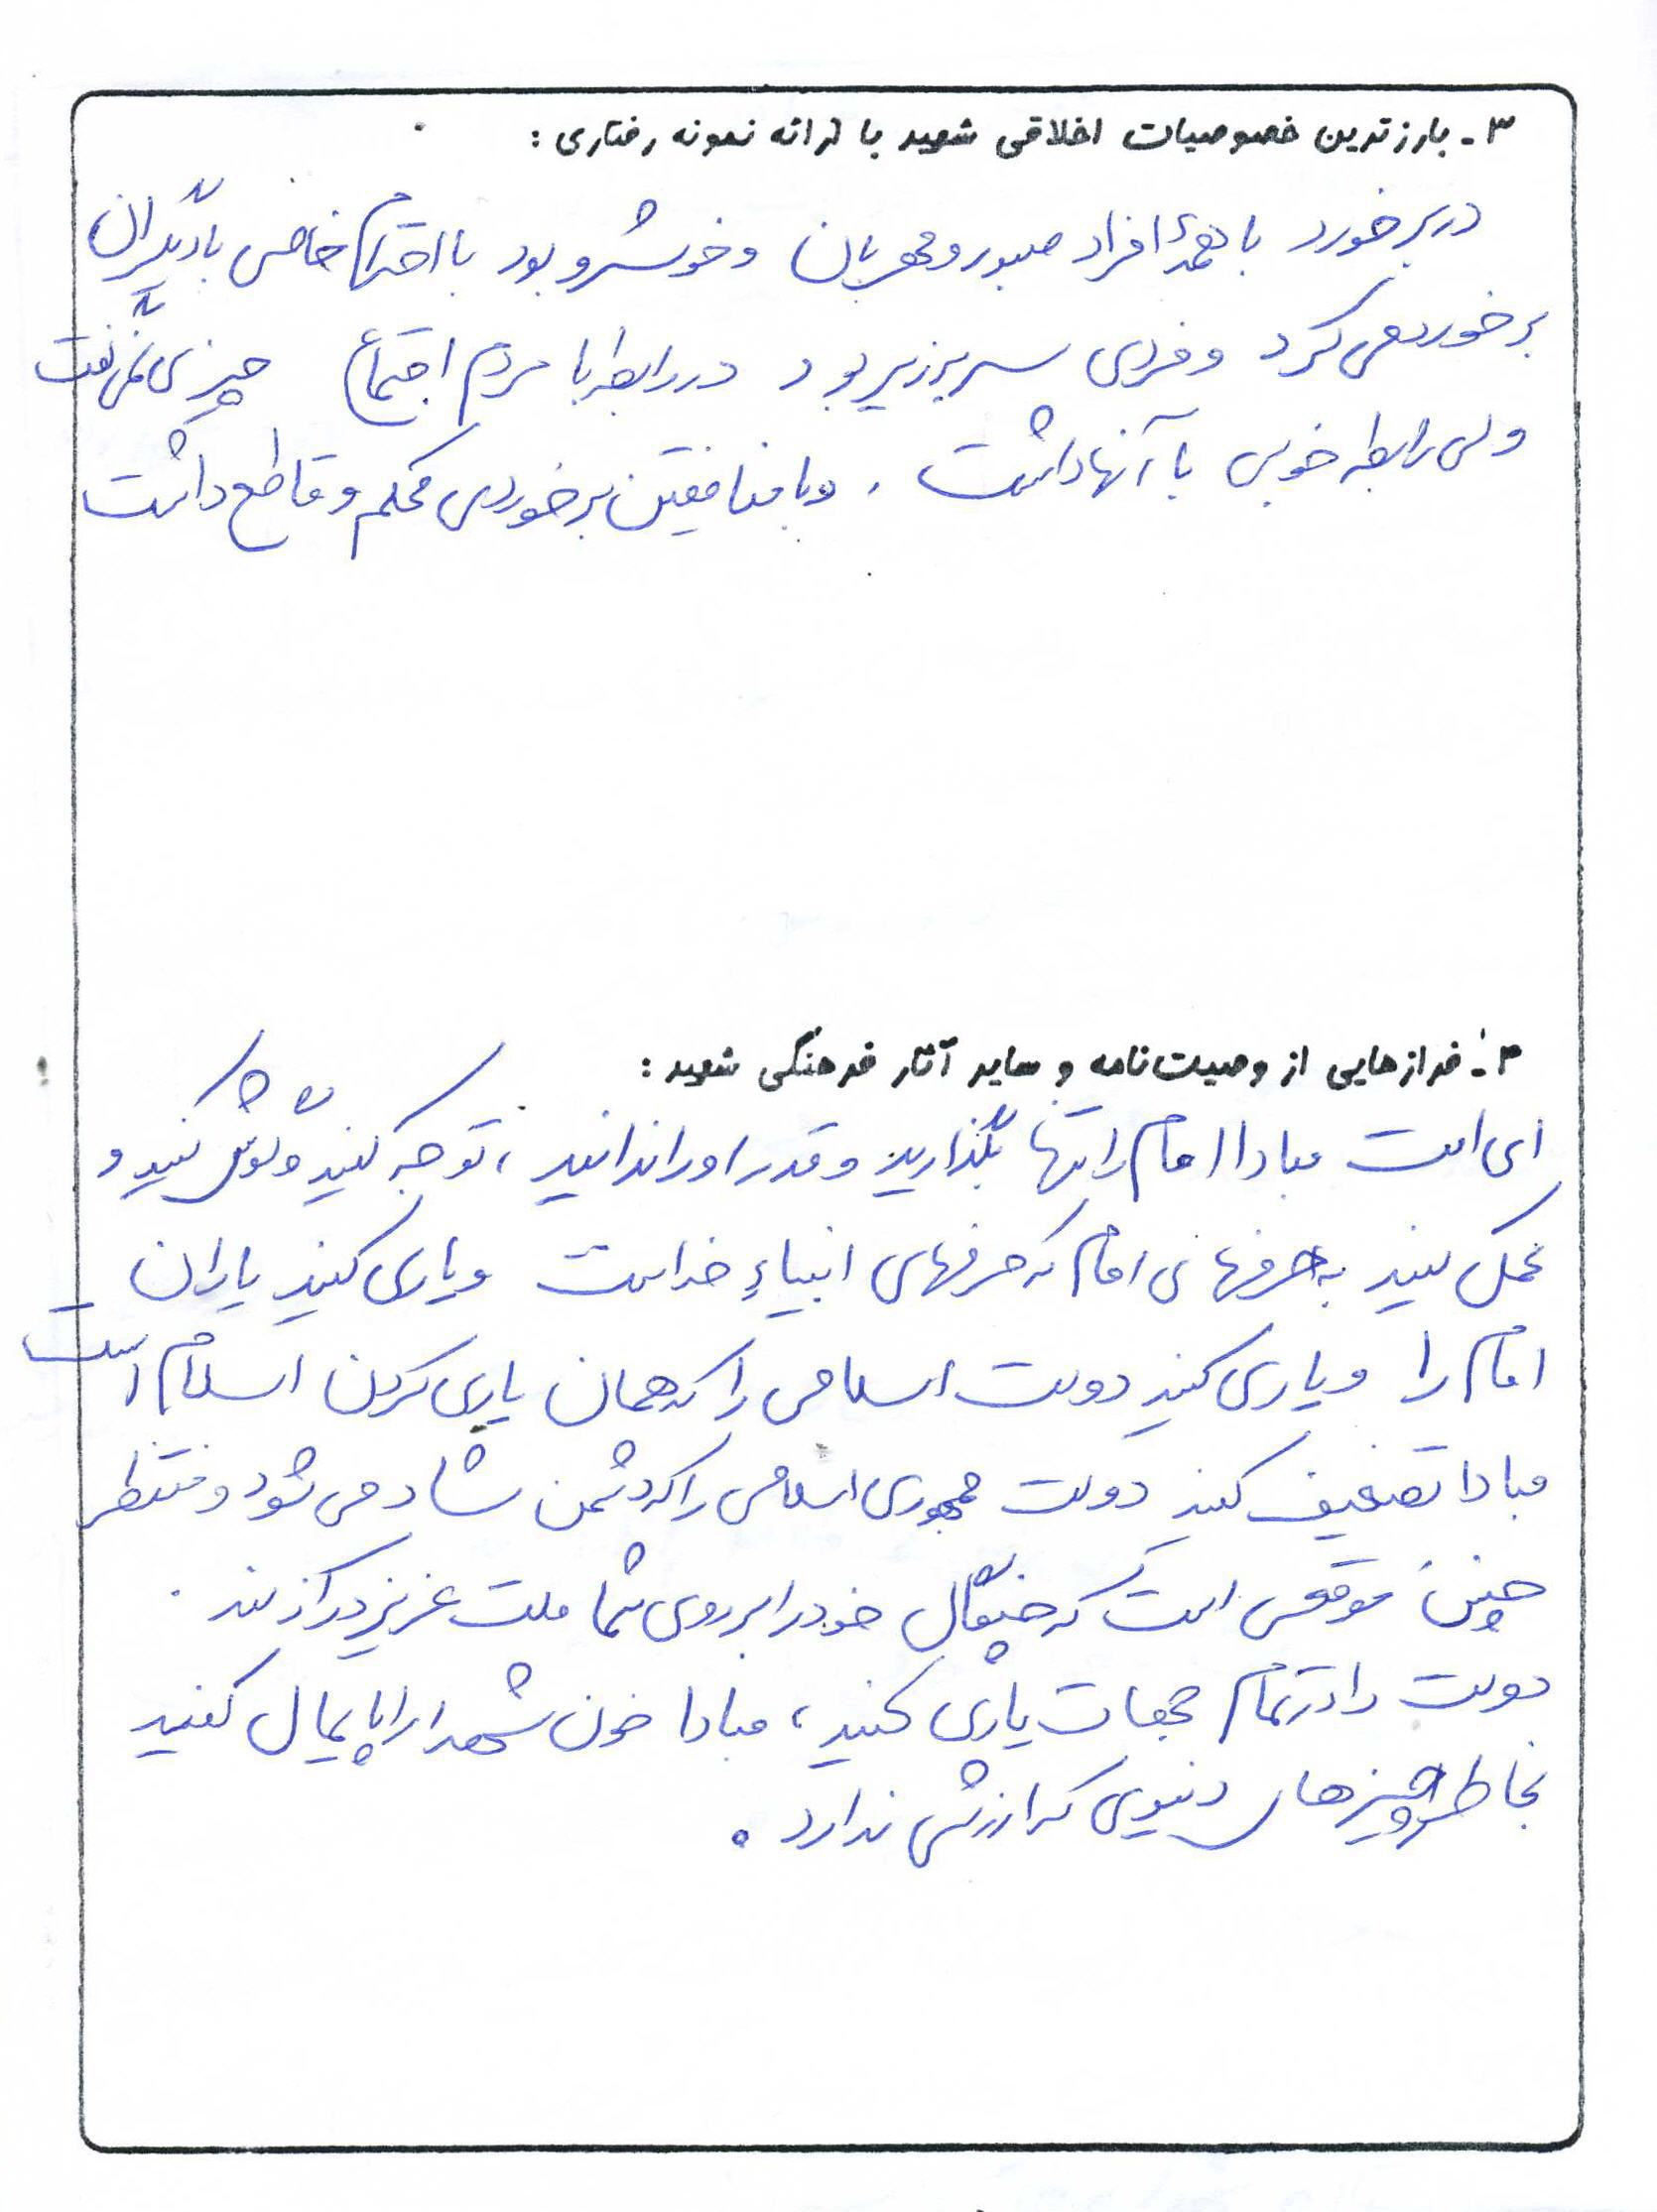 ۳- بارزترین خصوصیات اخلاقی شهید با ارائه نمونه رفتاری :
در برخورد با همهٔ افراد صبور و مهربان و خوشرو بود با احترام خاص با دیگران
برخورد می کرد و فردی سربزیر بود در رابطه با مردم اجتماع چیزی نمی گفت
ولی رابطه خوبی با آنها داشت . و با منافقین برخوردی محکم و قاطع داشت
۴- فرازهایی از وصیت‌نامه و سایر آثار فرهنگی شهید :
ای امت مبادا امام را تنها بگذارید و قدر او را ندانید ، توجه کنید و گوش کنید و
عمل کنید به حرفهای امام که حرفهای انبیاءِ خداست و یاری کنید یاران
امام را و یاری کنید دولت اسلامی را که همان یاری کردن اسلام است
مبادا تضعیف کنید دولت جمهوری اسلامی را که دشمن شاد می شود و منتظر
چنین موقعی است که چنگال خود را بر روی شما ملت عزیز دراز کند .
دولت را در تمام جهات یاری کنید ، مبادا خون شهدا را پایمال کنید
بخاطر چیزهای دنیوی که ارزش ندارد .